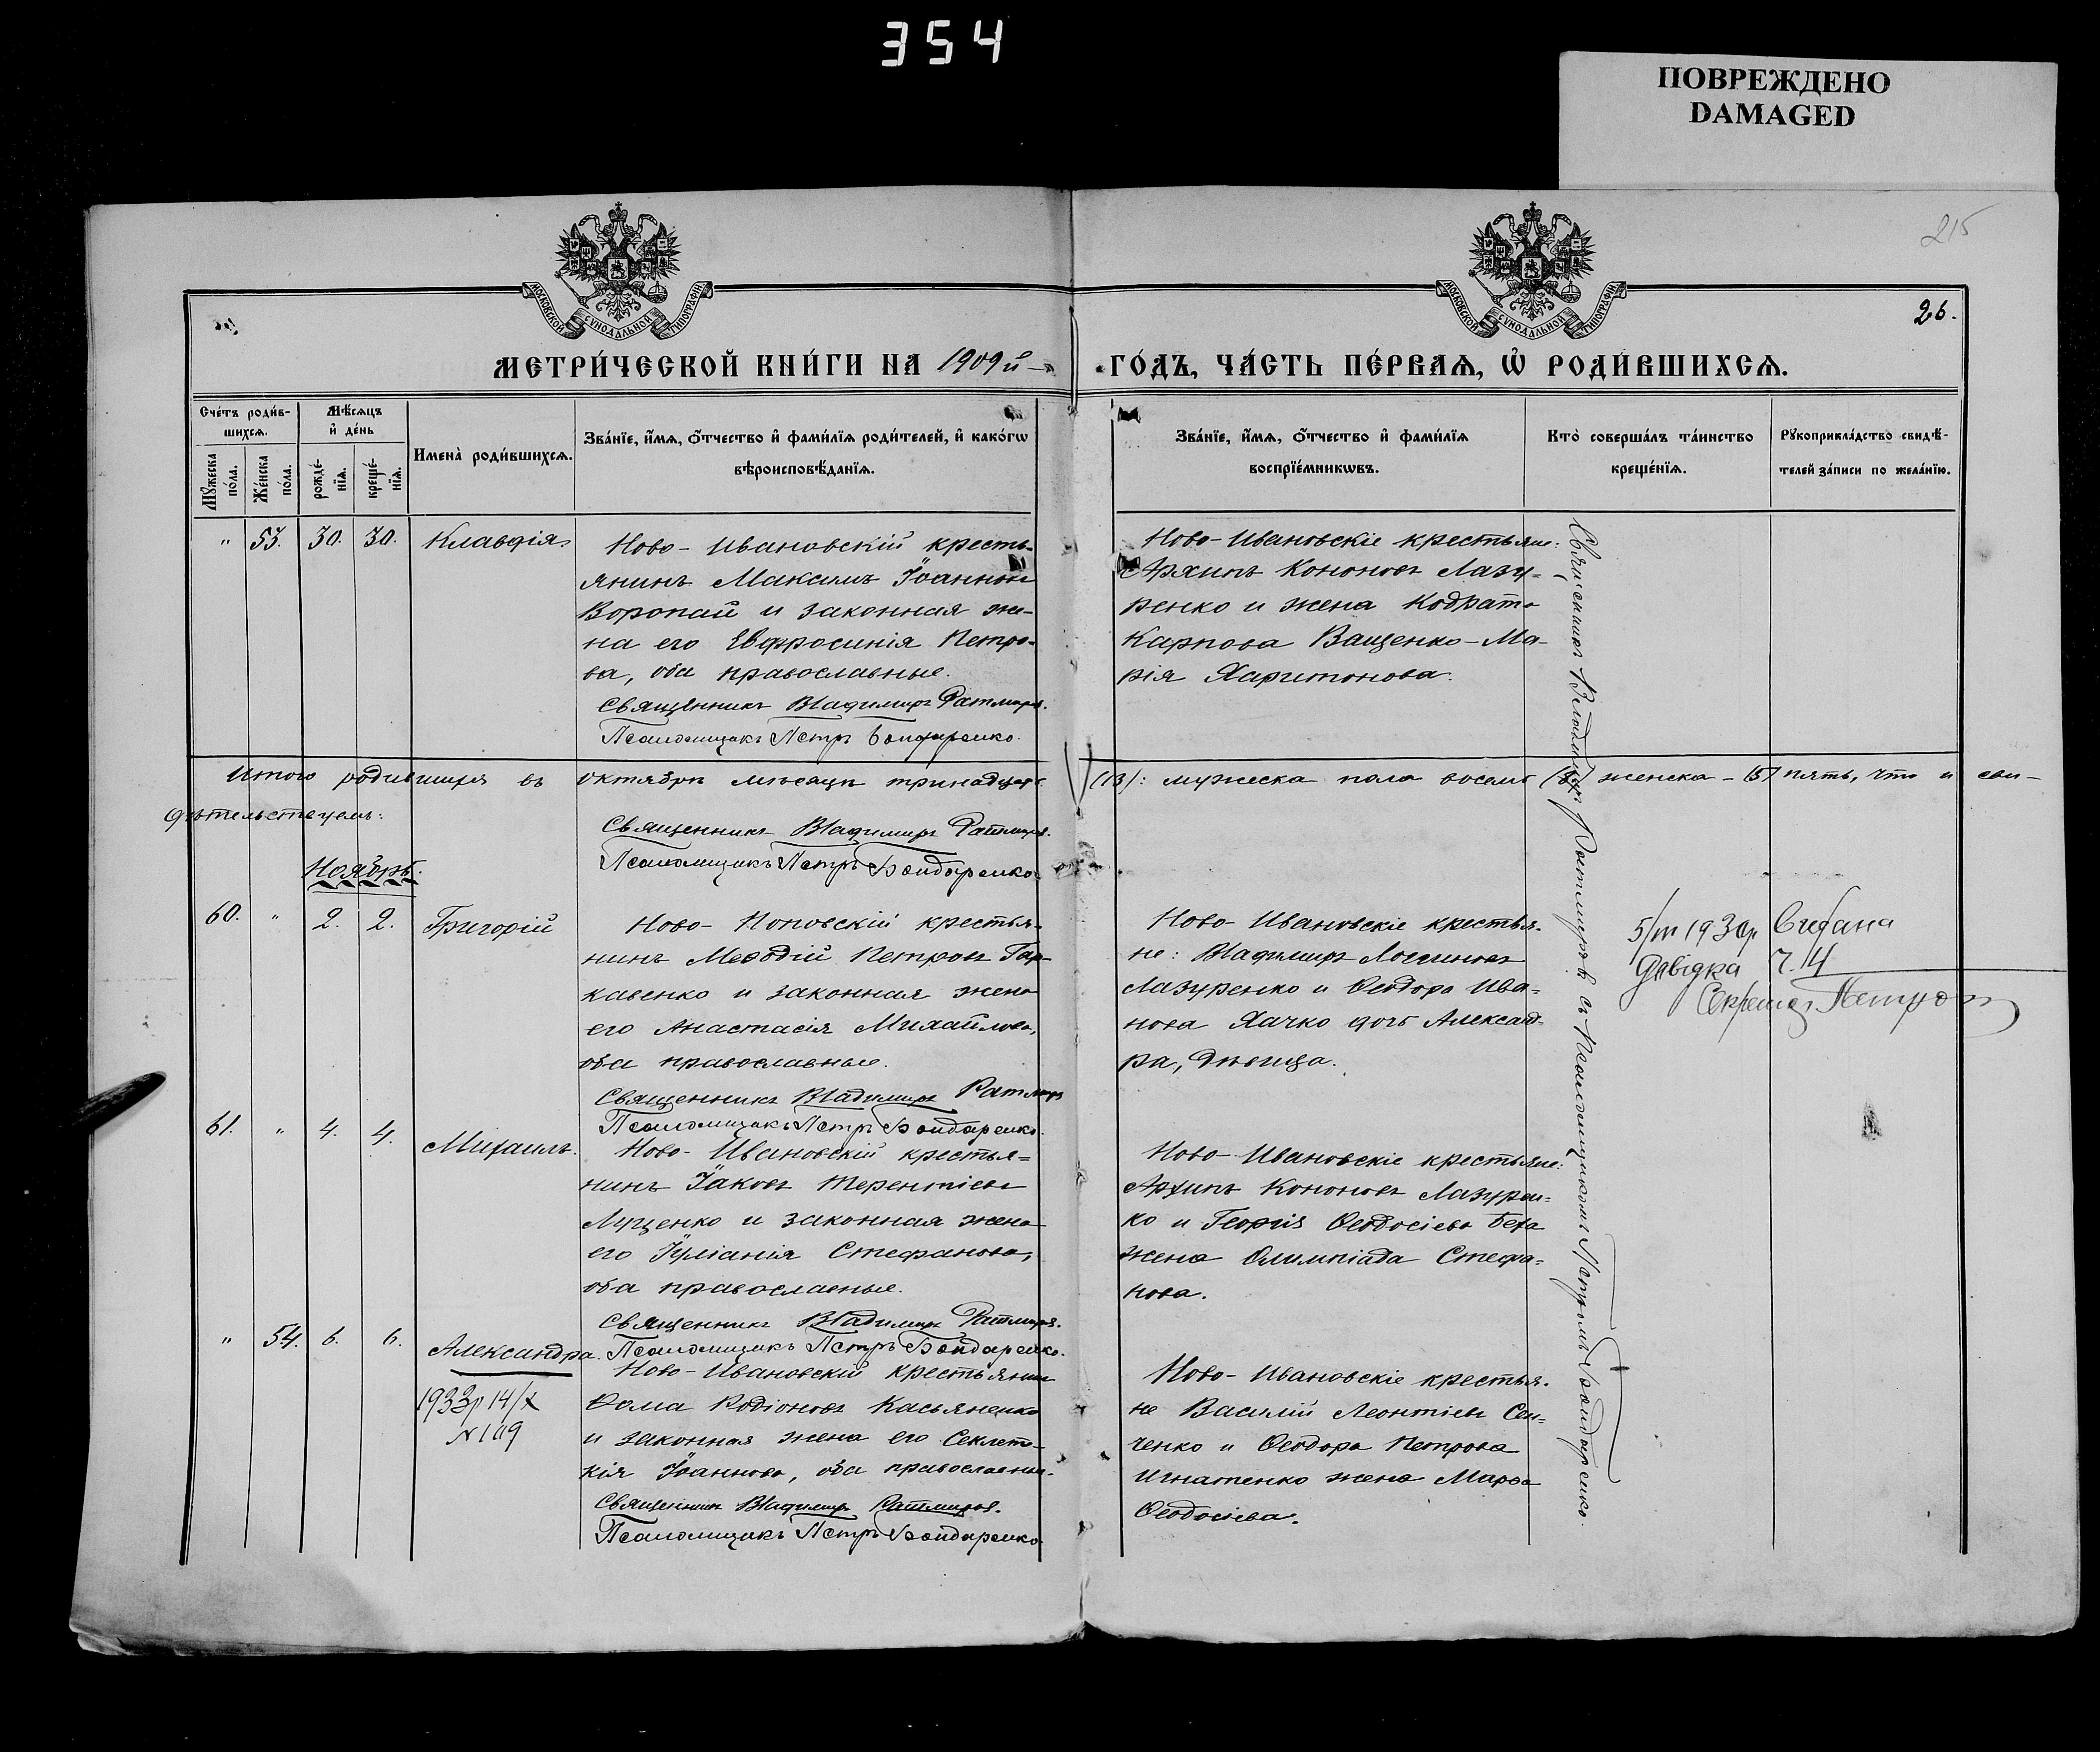 354
ПОВРЕЖДЕНО
DAMAGED
215
26.
МОСКОВСКОЙ СѴНОДАЛЬНОЙ ТИПОГРАФІИ
МОСКОВСКОЙ СѴНОДАЛЬНОЙ ТИПОГРАФІИ
МЕТРИ́ЧЕСКОЙ КНИ́ГИ НА 1909й ГО́ДЪ, ЧА́СТЬ ПЕ́РВАѦ, Ѡ҆ РОДИ́ВШИХСѦ.
Сче́тъ роди́в-
шихсѧ.
Мѣ́сѧцъ
и҆ де́нь
Мꙋ́жеска по́ла.
Же́нска по́ла.
рожде́-
нїѧ.
креще́-
нїѧ.
Имена̀ роди́вшихсѧ.
Зва́нїе, и҆́мѧ, ѻ҆́тчество и҆ фами́лїѧ роди́телей, и҆ како́гѡ
вѣроисповѣ́данїѧ.
Зва́нїе, и҆́мѧ, ѻ҆́тчество и҆ фами́лїѧ
воспрїе́мникѡвъ.
Кто̀ соверша́лъ та́инство
креще́нїѧ.
Рꙋкоприкла́дство свидѣ́-
телей за́писи по жела́нїю.
" 53. 30. 30. Клавдія.
Ново-Ивановскій кресть-
янинъ Максимъ Іоанновъ
Воропай и законная же-
на его Евфросинія Петро-
ва, оба православные.
Священникъ Владимиръ Ратмиров.
Псаломщикъ Петръ Бондаренко.
Ново-Ивановскіе крестьяне:
Архипъ Кононовъ Лазу-
ренко и жена Кодрата
Карпова Ващенко-Ма-
рія Харитонова.
Итого родившихся въ октябрѣ мѣсяцѣ тринадцать (13): мужеска пола восемь (8) женска - (5) пять, что и сви-
дѣтельствуемъ:
Священникъ Владимиръ Ратмиров.
Псаломщикъ Петръ Бондаренко.
Ноябрь.
60. " 2. 2. Григорій
Ново-Поповскій крестья-
нинъ Меѳодій Петровъ Гар-
кавенко и законная жена
его Анастасія Михайлова,
оба православные.
Священникъ Владимиръ Ратмиров
Псаломщикъ Петръ Бондаренко.
Ново-Ивановскіе крестья-
не: Владимиръ Логгиновъ
Лазуренко и Ѳеодора Ива-
нова Хачко дочь Александ-
ра, дѣвица.
5/III 1930р
Довідка Ч. 4
61. " 4. 4. Михаилъ.
Ново-Ивановскій крестья-
нинъ Іаковъ Терентіевъ
Луценко и законная жена
его Іуліанія Стефанова,
оба православные.
Священникъ Владимиръ Ратмиров.
Псаломщикъ Петръ Бондаренко.
Ново-Ивановскіе крестьяне:
Архипъ Кононовъ Лазурен-
ко и Георгія Ѳеодосіева Беха
жена Олимпіада Стефа-
нова.
" 54. 6. 6. Александра.
1933р 14/X
N 109
Ново-Ивановскій крестьянинъ
Ѳома Родіоновъ Касьяненко
и законная жена его Секлети-
кія Іоаннова, оба православные.
Священникъ Владимиръ Ратмиров.
Псаломщикъ Петръ Бондаренко
Ново-Ивановскіе крестья-
не Василій Леонтіевъ Сен-
ченко и Ѳеодора Петрова
Игнатенко жена Марѳа
Ѳеодосіева.
Священникъ Владимиръ Ратмировъ съ псаломщикомъ Петромъ Бондаренко